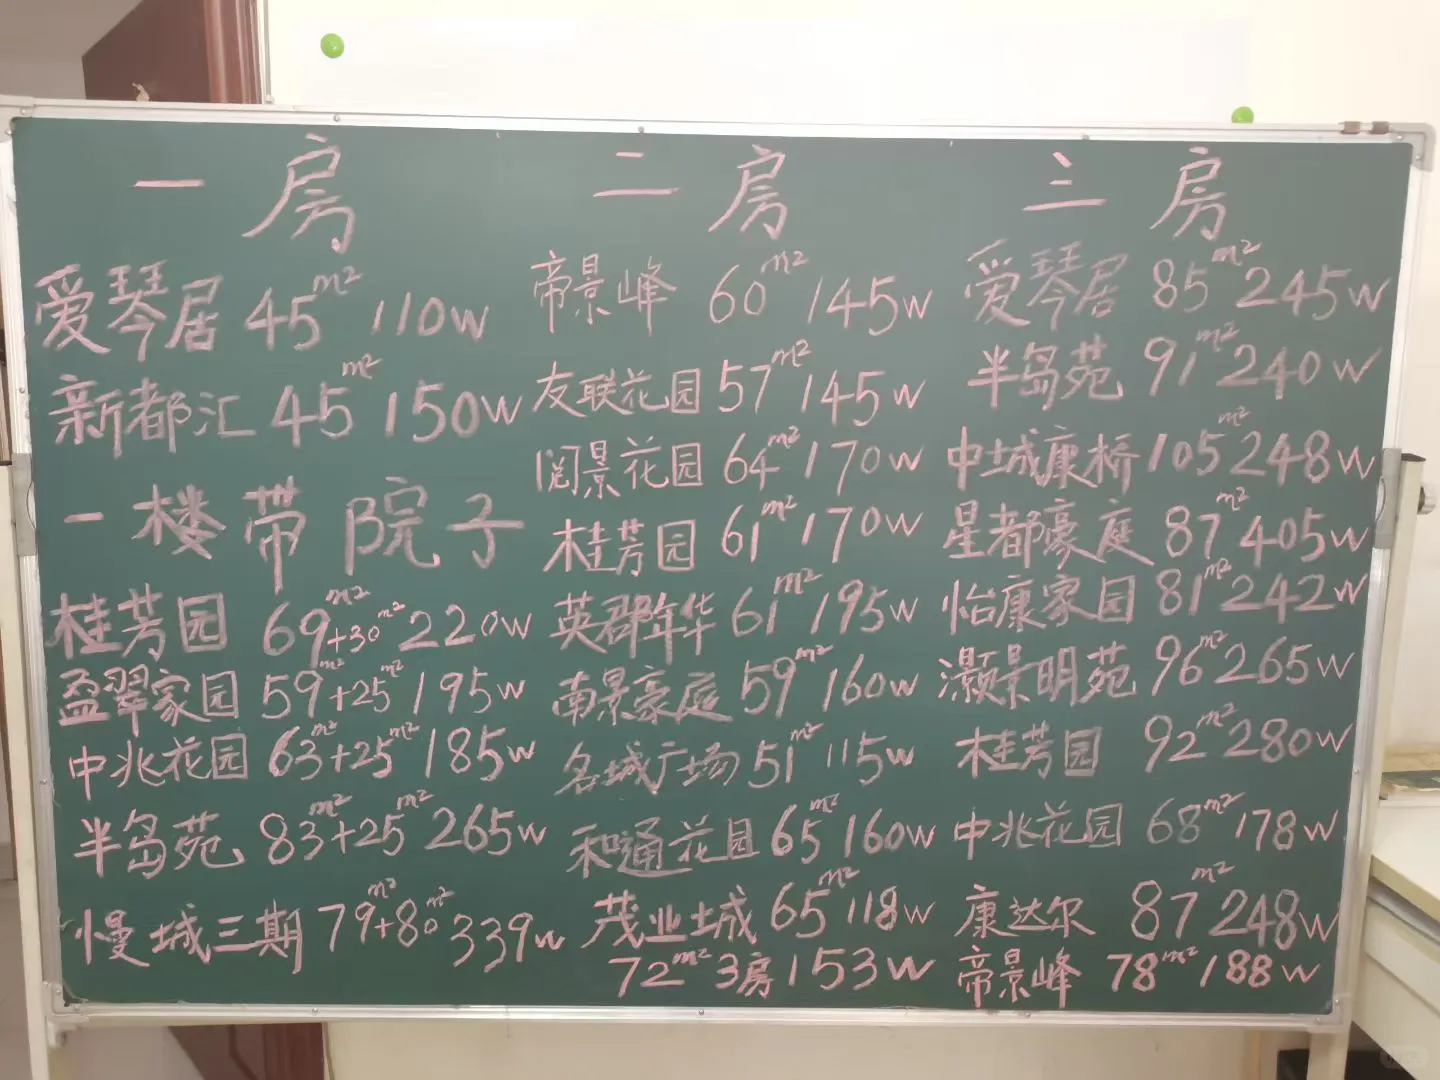 一房
爱琴居 45m² 110W
新都汇 45m² 150W
一楼带院子
桂芳园 69m²+30m² 220W
盈翠家园 59m²+25m² 195W
中兆花园 63m²+25m² 185W
半岛苑 83m²+25m² 265W
慢城三期 79m²+80m² 339W
二房
帝景峰 60m² 145W
友联花园 57m² 145W
阅景花园 64m² 170W
桂芳园 61m² 170W
英郡年华 61m² 195W
南景豪庭 59m² 160W
名城广场 51m² 115W
和通花园 65m² 160W
茂业城 65m² 118W
72m² 3房 153W
三房
爱琴居 85m² 245W
半岛苑 91m² 240W
中城康桥 105m² 248W
星都豪庭 87m² 405W
怡康家园 81m² 242W
灏景明苑 96m² 265W
桂芳园 92m² 280W
中兆花园 68m² 178W
康达尔 87m² 248W
帝景峰 78m² 188W